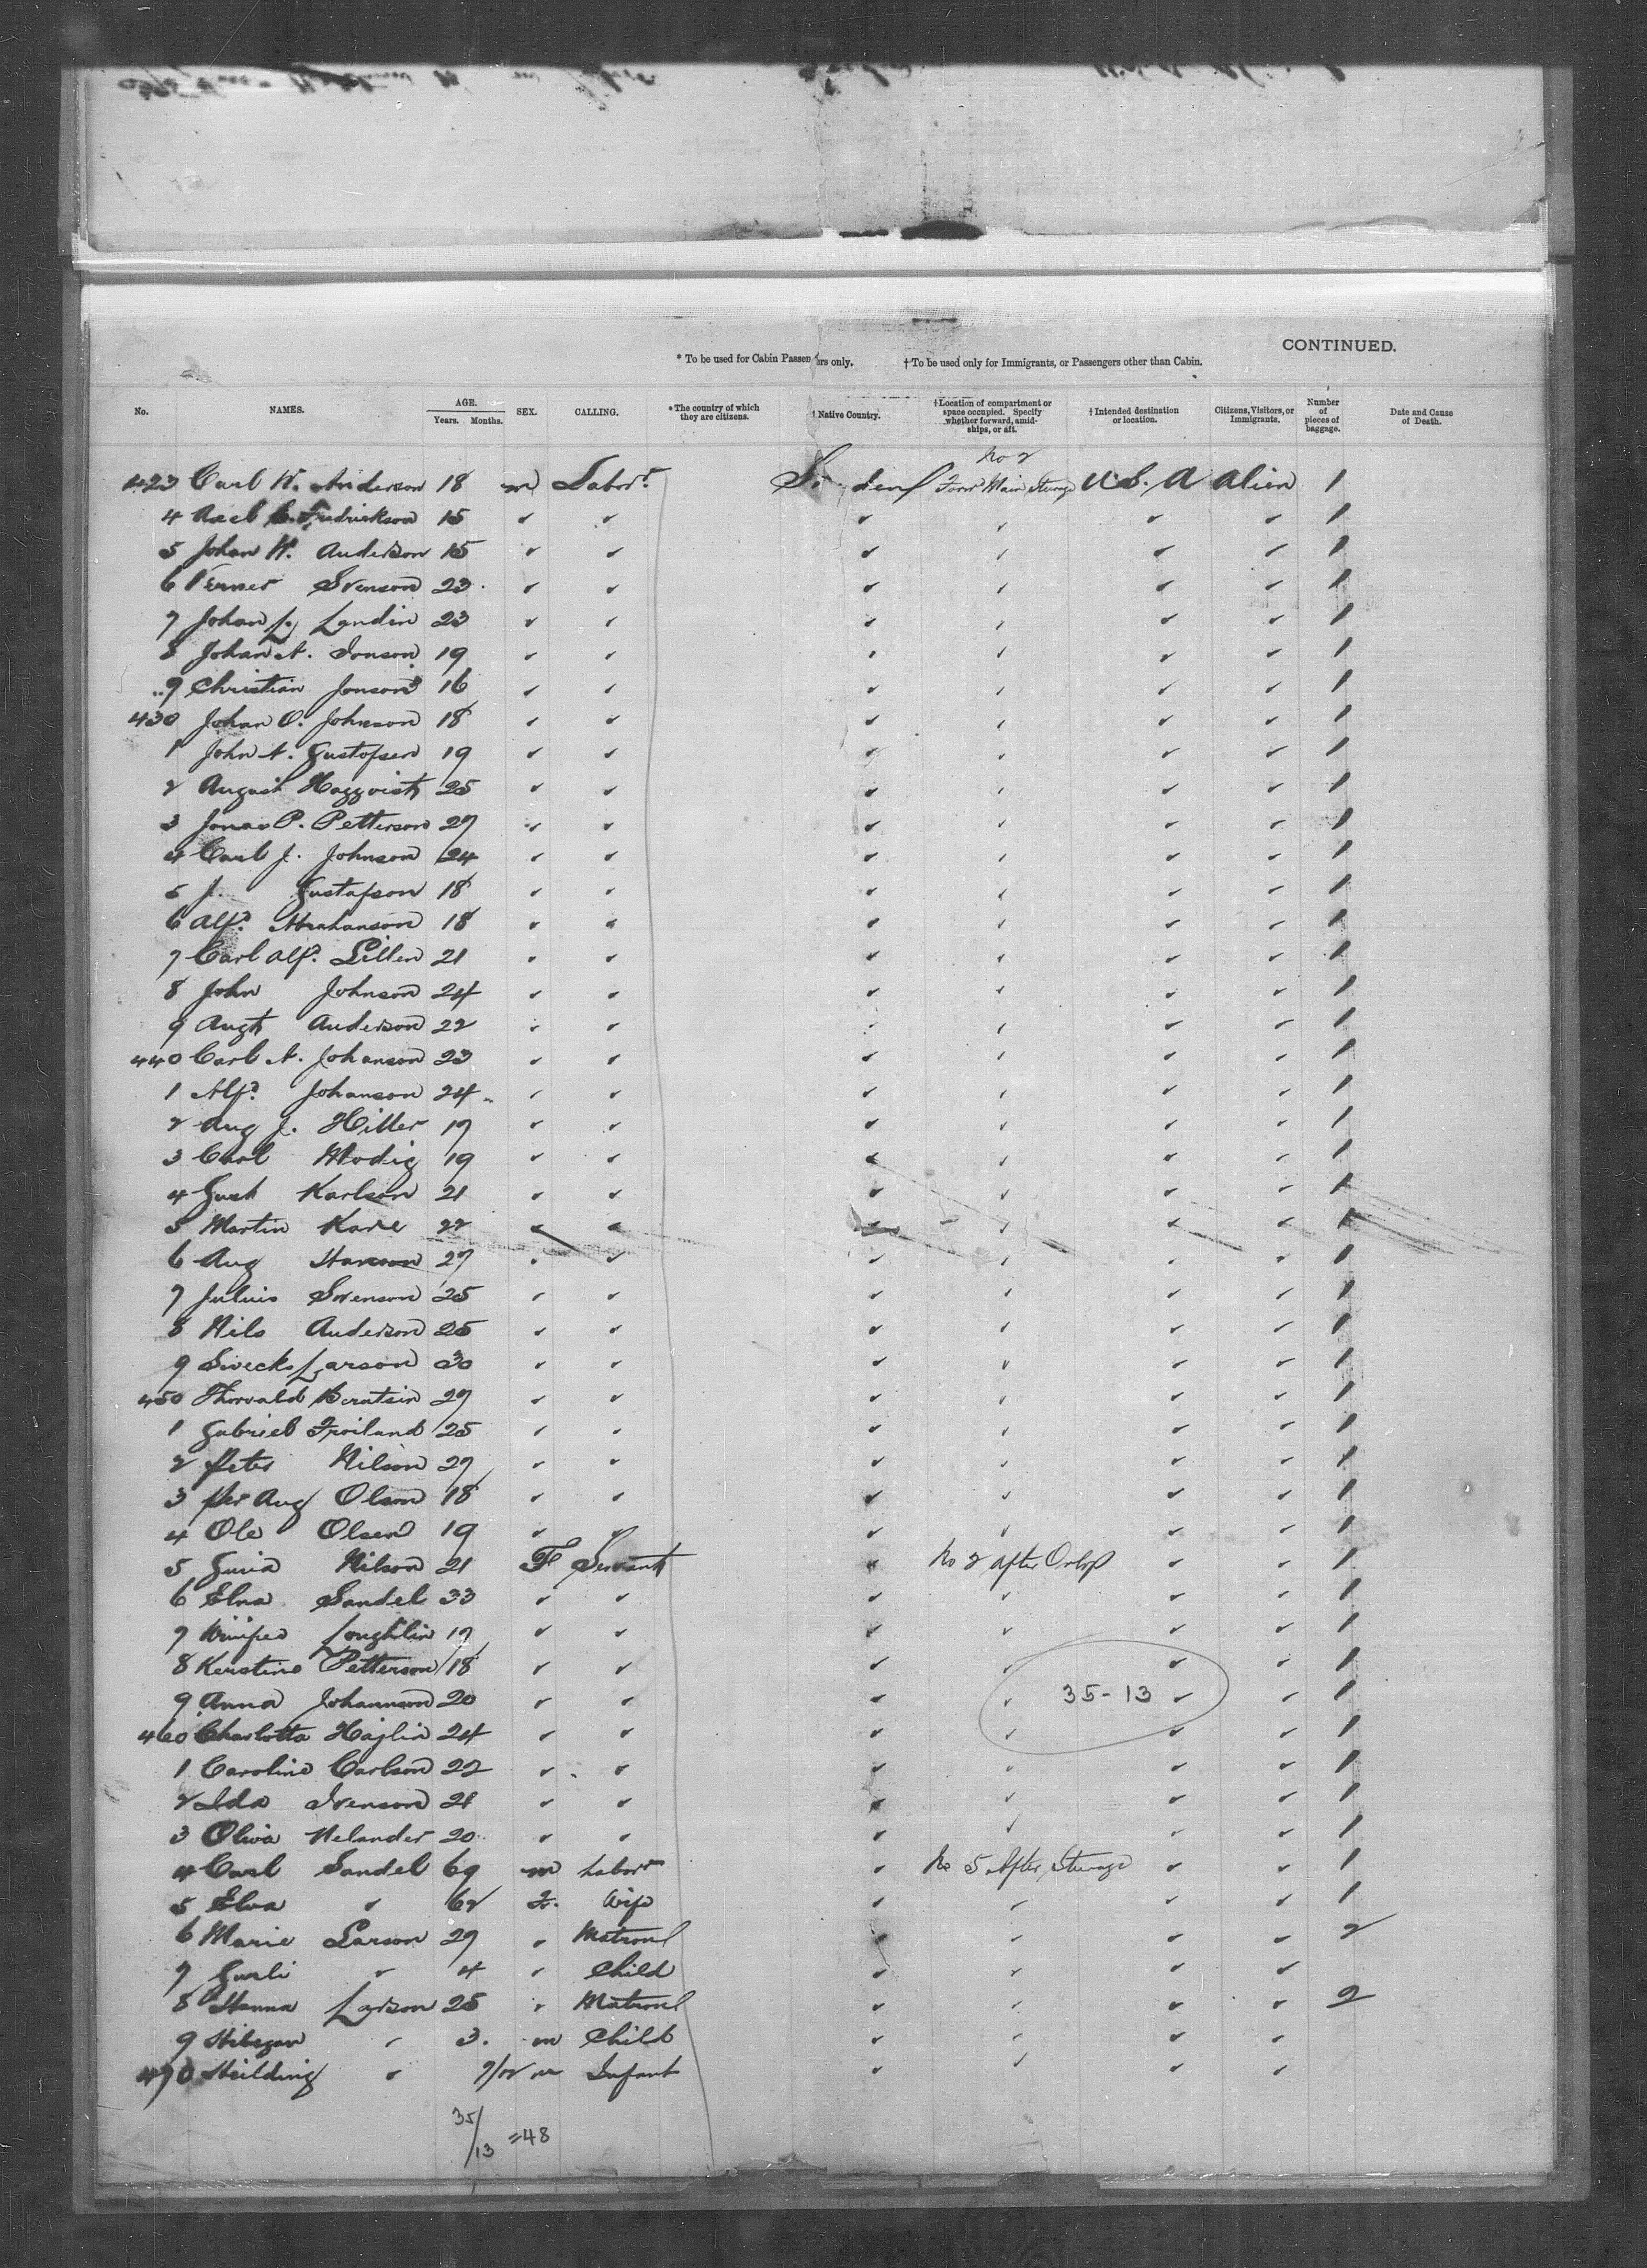 CONTINUED.
* To be used for Cabin Passengers only. † To be used only for Immigrants, or Passengers other than Cabin.
No. NAMES. AGE. Years. Months. SEX. CALLING. * The country of which they are citizens. † Native Country. † Location of compartment or space occupied. Specify whether forward, amidships, or aft. † Intended destination or location. Citizens, Visitors, or Immigrants. Number of pieces of baggage. Date and Cause of Death.
No 2
423 Carl W. Anderson 18 m Labor Main Sterage U.S.A Alien 1
4 Axel Fredrickson 15 ✓ ✓ ✓ ✓ ✓ ✓ 1
5 Johan W. Anderson 15 ✓ ✓ ✓ ✓ ✓ ✓ 1
6 Verner Svenson 23 ✓ ✓ ✓ ✓ ✓ ✓ 1
7 Johan L Landin 23 ✓ ✓ ✓ ✓ ✓ ✓ 1
8 Johan A. Jonson 19 ✓ ✓ ✓ ✓ ✓ ✓ 1
9 Christian Jonson 16 ✓ ✓ ✓ ✓ ✓ ✓ 1
430 Johan O. Johnson 18 ✓ ✓ ✓ ✓ ✓ ✓ 1
1 John A. Gustofsen 19 ✓ ✓ ✓ ✓ ✓ ✓ 1
2 August Haggvist 25 ✓ ✓ ✓ ✓ ✓ ✓ 1
3 Jonas P. Petterson 27 ✓ ✓ ✓ ✓ ✓ ✓ 1
4 Carl J. Johnson 24 ✓ ✓ ✓ ✓ ✓ ✓ 1
5 J. Gustafson 18 ✓ ✓ ✓ ✓ ✓ ✓ 1
6 Alfd. Abrahanson 18 ✓ ✓ ✓ ✓ ✓ ✓ 1
7 Carl Alfd. Lillen 21 ✓ ✓ ✓ ✓ ✓ ✓ 1
8 John Johnson 24 ✓ ✓ ✓ ✓ ✓ ✓ 1
9 Augt Anderson 22 ✓ ✓ ✓ ✓ ✓ ✓ 1
440 Carl A. Johanson 23 ✓ ✓ ✓ ✓ ✓ ✓ 1
1 Alfd. Johanson 24 ✓ ✓ ✓ ✓ ✓ ✓ 1
2 Aug J. Hiller 17 ✓ ✓ ✓ ✓ ✓ ✓ 1
3 Carl Modig 19 ✓ ✓ ✓ ✓ ✓ ✓ 1
4 Gust Karlson 21 ✓ ✓ ✓ ✓ ✓ ✓ 1
5 Martin Kare 22 ✓ ✓ ✓ ✓ ✓ ✓ 1
6 Aug 27 ✓ ✓ ✓ ✓ ✓ ✓ 1
7 Julius Svenson 25 ✓ ✓ ✓ ✓ ✓ ✓ 1
8 Nils Anderson 25 ✓ ✓ ✓ ✓ ✓ ✓ 1
9 Larson 30 ✓ ✓ ✓ ✓ ✓ ✓ 1
450 Thorvald Berntsin 27 ✓ ✓ ✓ ✓ ✓ ✓ 1
1 Gabriel Froiland 25 ✓ ✓ ✓ ✓ ✓ ✓ 1
2 Peter Nilson 27 ✓ ✓ ✓ ✓ ✓ ✓ 1
3 Per Aug Olson 18 ✓ ✓ ✓ ✓ ✓ ✓ 1
4 Ole Olsen 19 ✓ ✓ ✓ ✓ ✓ ✓ 1
5 Nilson 21 F Servant ✓ No 2 after Orlop ✓ ✓ 1
6 Elna Sandel 33 ✓ ✓ ✓ ✓ ✓ ✓ 1
7 Loughlin 17 ✓ ✓ ✓ ✓ ✓ ✓ 1
8 Kerstine Petterson 18 ✓ ✓ ✓ ✓ ✓ ✓ 1
9 Anna Johannson 20 ✓ ✓ ✓ ✓ 35-13 ✓ ✓ 1
460 Charlotta Hajlin 24 ✓ ✓ ✓ ✓ ✓ ✓ 1
1 Caroline Carlson 22 ✓ ✓ ✓ ✓ ✓ ✓ 1
2 Ida Svenson 21 ✓ ✓ ✓ ✓ ✓ ✓ 1
3 Oliva Nelander 20 ✓ ✓ ✓ ✓ ✓ ✓ 1
4 Carl Sandel 69 m Labor ✓ No 5 After Sterage ✓ ✓ 1
5 Elna ✓ 62 F. Wife ✓ ✓ ✓ ✓ 1
6 Marie Larson 29 ✓ Matron ✓ ✓ ✓ ✓ 2
7 Gurli ✓ 4 ✓ Child ✓ ✓ ✓ ✓
8 Hanna Larson 25 ✓ Matron ✓ ✓ ✓ ✓ 2
9 ✓ 3. m Child ✓ ✓ ✓ ✓
470 Heilding ✓ m Infant ✓ ✓ ✓ ✓
35/13 =48